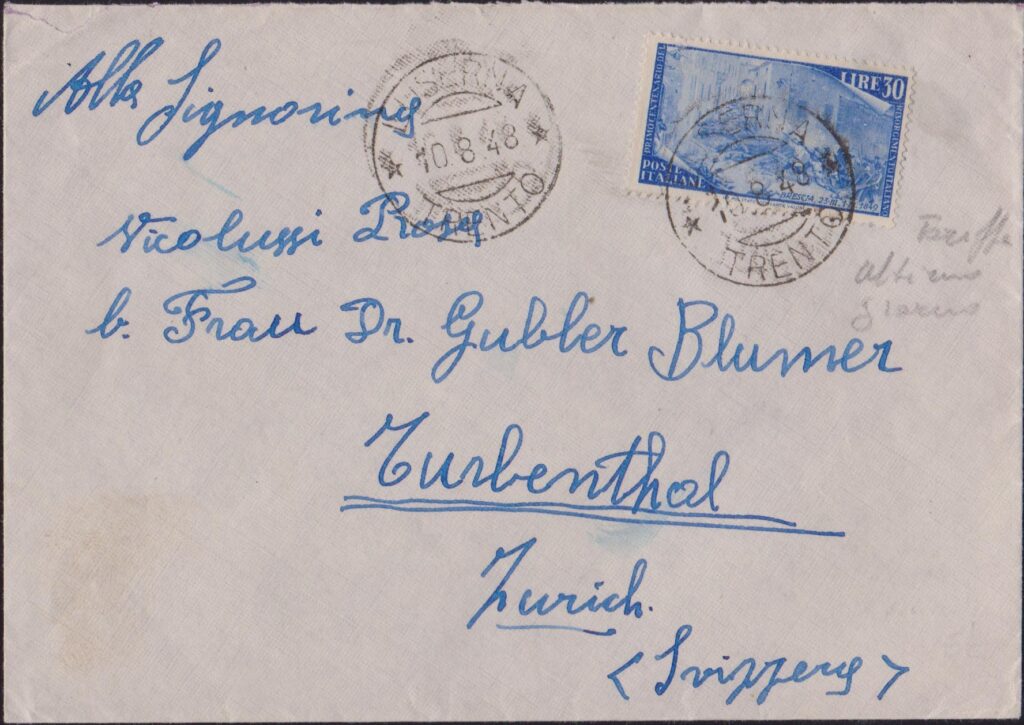 Alla Signorina
LUSERNA
10.8.48
TRENTO
LIRE 30
PRIMO CENTENARIO DEL
RISORGIMENTO ITALIANO
POSTE
ITALIANE
BRESCIA
LUSERNA
10.8.48
TRENTO
Tariffa
ultimo
giorno
Nicolussi Rosy
b. Frau Dr. Gubler Blumer
Turbenthal
Zurich.
(Svizzera)